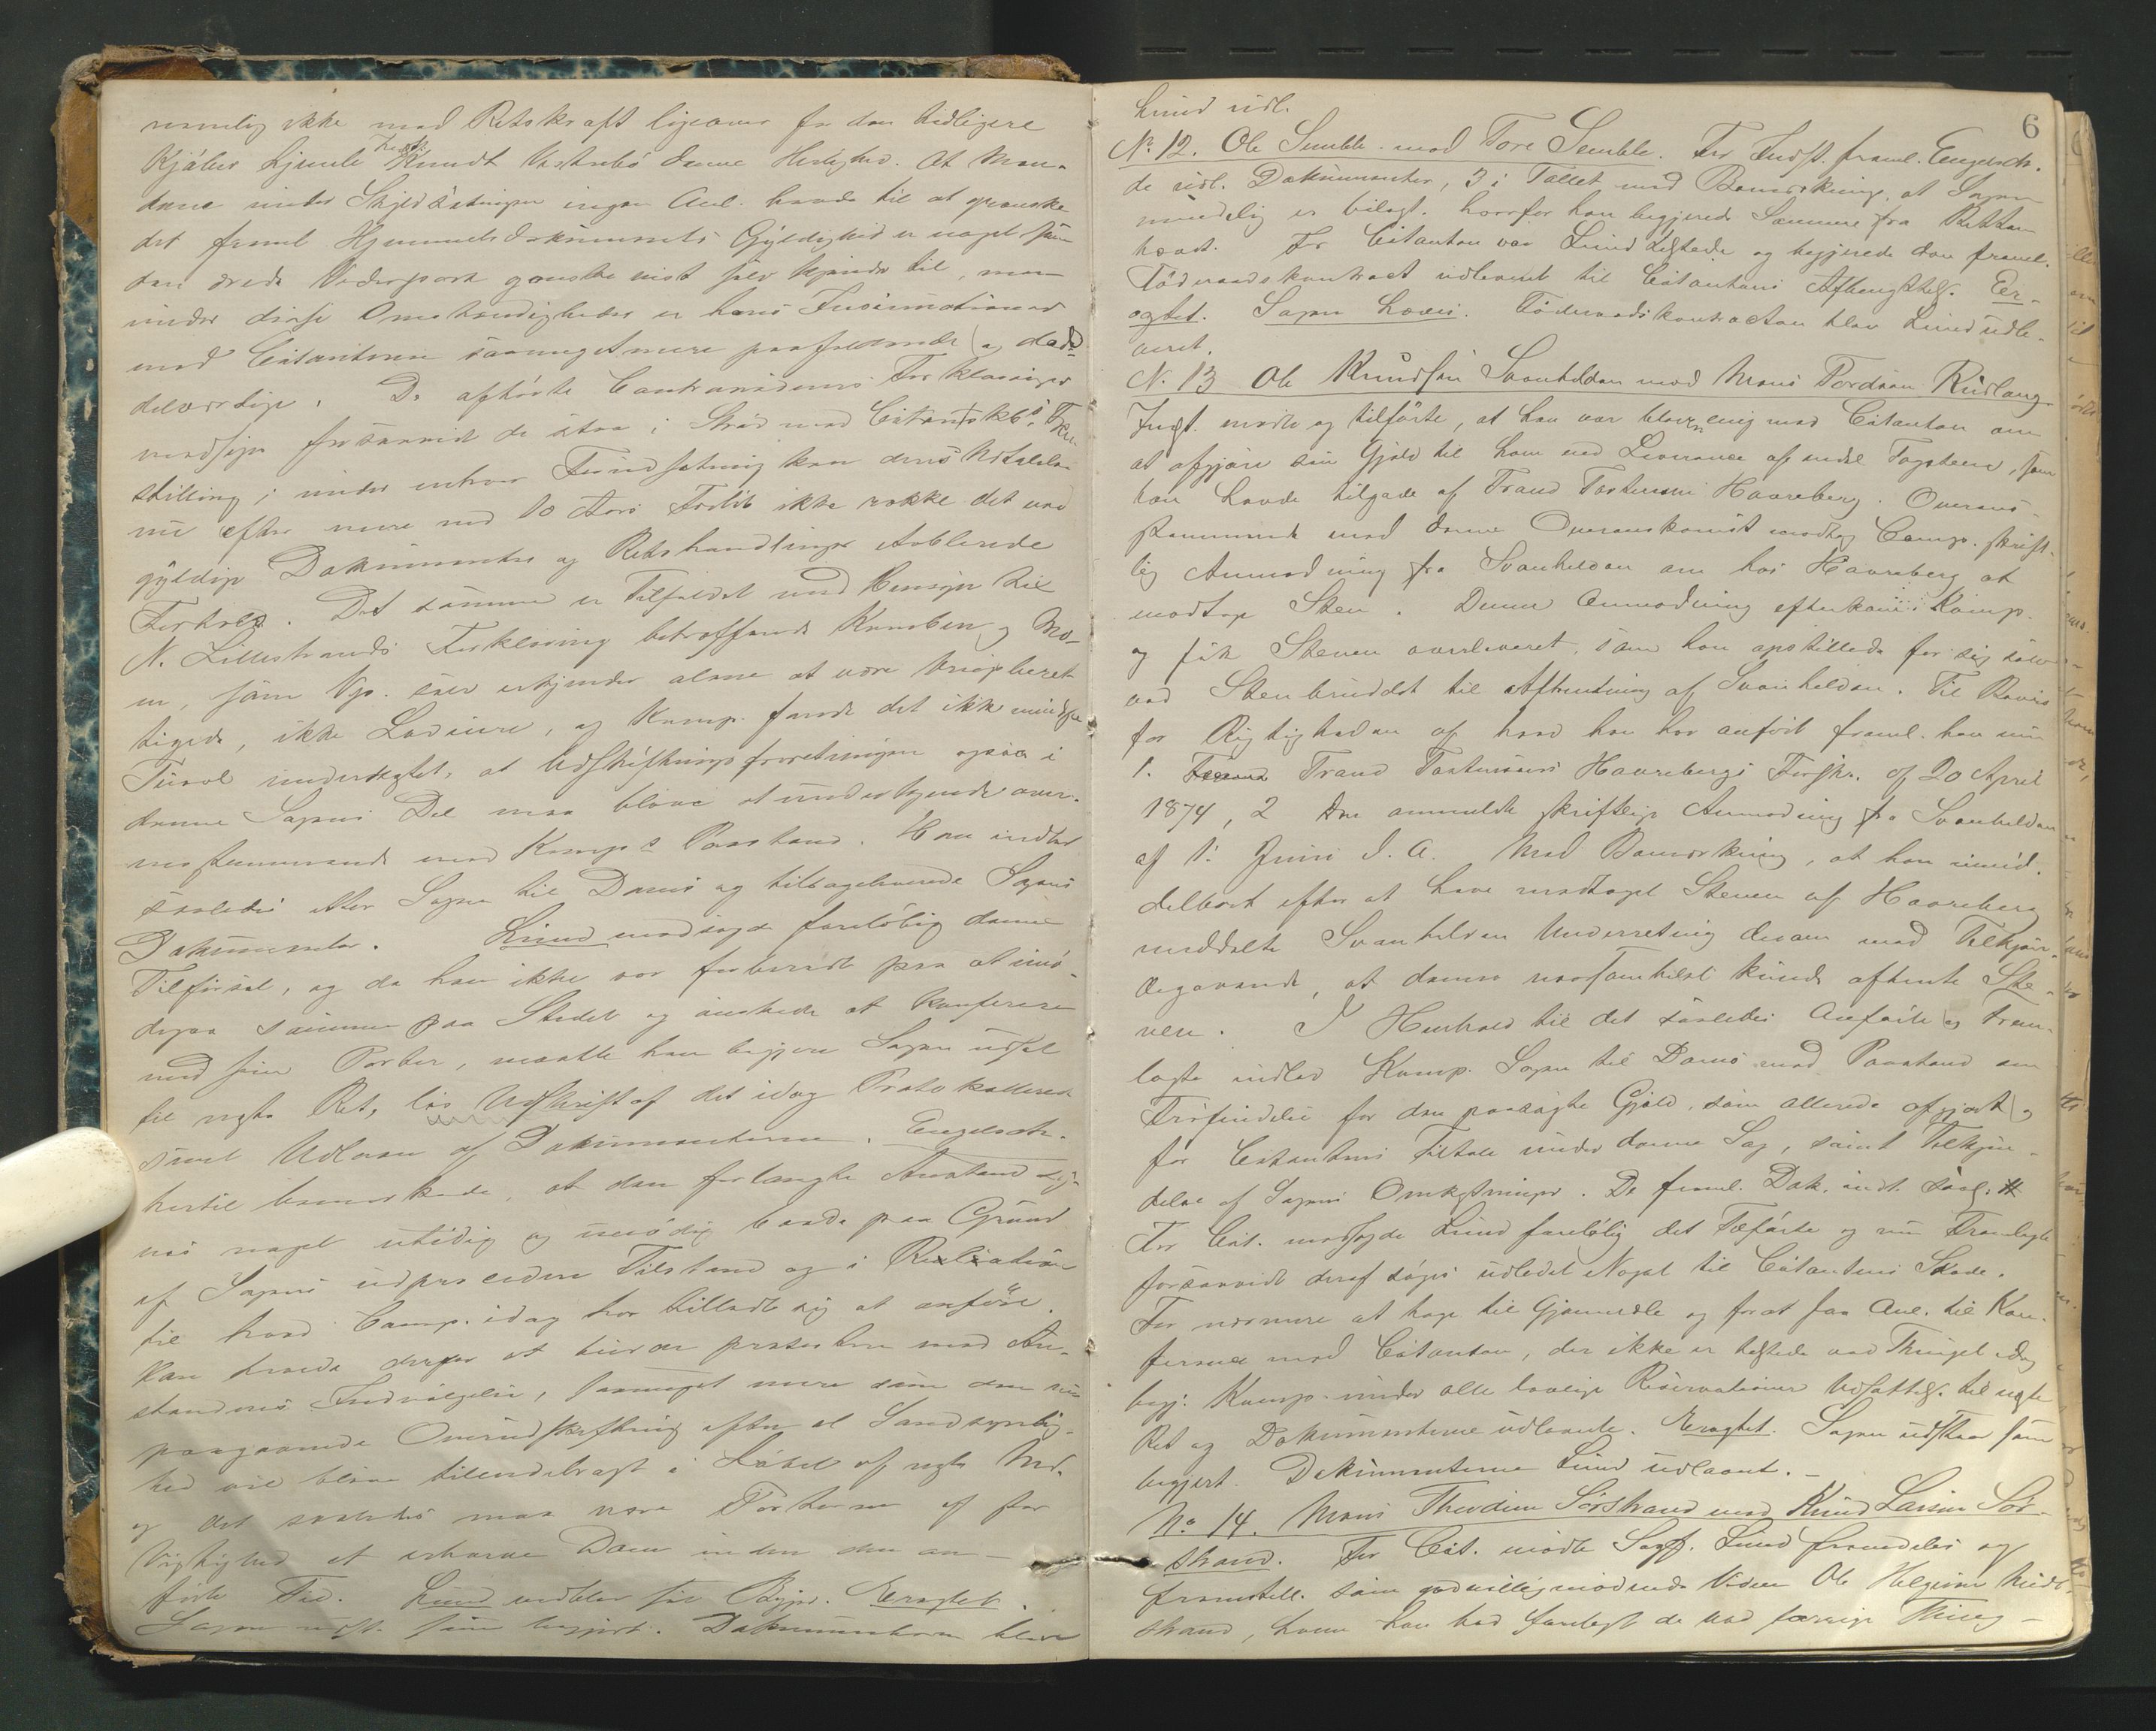 nemlig ikke med Retskraft ligeover for den tidligere
Kjøber Ljunle Knudt Vestrebø denne Herlighed. At Man-
dene under Skjødsætningen ingen Anl. havde til at granske
det freml Hjemmelsdokuments Gyldighed er noget som
den ærede Vederpart ganske vist selv kjender til, men
under disse Omstændigheder er hans Insinuationer
mod Citantinen saameget mere paafaldende og dad-
delværdige. De afhørte Contravidners Forklaringer
modsiges forsaavidt de staa i Strid med Citantskbs Frem
stilling; under enhver Forudsætning kan deres Udtalelser
nu efter mere end 10 Aars Forløb ikke rokke det ved
gyldige Dokumenter og Retshandlinger etablerede
Forhold. Det samme er Tilfældet med Hensyn til
N. Lillestrands Forklaring betræffende Kvernben og Mo-
en, som Vp. selv erkjender alene at være brugsberet
tigede, ikke Lodeiere, og Komp. fandt det ikke mindste
Tvivl underkastet, at Udskiftningsforretningen ogsaa i
denne Sagens Del maa blive at underkjende over-
ensstemmende med Komp s Paastand. Han indlod
saaledes atter Sagen til Doms og tilbageleverede Sagens
Dokumenter. Lund modsagde foreløbig denne
Tilførsel, og da han ikke var forberedt paa at imø-
degaa samme paa Stedet og ønskede at konferere
med sin Parter, maatte han begjære Sagen udsat
til næste Ret, løs Udskrift af det idag Protokollerede
samt Udlaan af Dokumenterne. Engelsch.
hertil bemærkede, at den forlangte Anstand sy-
nes noget utidig og unødig baade paa Grund
af Sagens udprocederede Tilstand og i Relation
til hvad Comp. idag har tilladt sig at anføre.
Han troede derfor at burde protestere mod An-
standens Indvilgelse, saameget mere som den nu
paagaaende Overudskiftning efter al Sandsynlig-
hed vil blive tilendebragt i Løbet af næste Md.
og det saaledes maa være Parterne af stor
Vigtighed at erhverve Dom inden den an-
førte Tid. Lund vedblev sit Begjær. Eragtet.
Sagen udst. som begjært. Dokumenterne blev
6
Lund udl.
No. 12. Ole Semble mod Tore Semble. For Indst. freml. Engelsch.
de udl. Dokumenter, 3 i Tallet med Bemærkning, at Sagen
mindelig er bilagt. hvorfor han begjærede Samme fra Retten
hævet. For Citanten var Lund tilstede og begjærede den freml.
Føderaadskontract udleveret til Citantens Afbenyttels. Er-
agtet. Sagen hæves. Føderaadskontracten blev Lund udle-
veret.
N. 13 Ole Knudsen Svanhilden mod Mons Tordsen Rudlang
Indst. mødte og tilførte, at han var bleven enig med Citanten om
at afgjøre sin Gjæld til ham ved Leverance af endel Tagsteen, som
han havde tilgode af Trond Torstensen Haareberg. Overens-
stemmende med denne Overenskomst modtog Comp. skrift-
lig Anmodning fra Svanhilden om hos Haareberg at
modtage Sten. Denne Anmodning efterkom Komp.
og fik Stenen overleveret, som han opstillede for sig selv
ved Stenbruddet til Afhentning af Svanhilden. Til Bevis
for Rigtigheden af hvad han har anført freml. han nu
1. Trond Torstensens Haarebergs Forskr. af 20 April
1874, 2 den anmeldte skriftlige Anmodning fra Svanhilden
af 1. Juni d. A. Med Bemærkning, at han umid-
delbart efter at have modtaget Stenen af Haareberg
meddelte Svanhilden Underretning derom med Tilkjen-
degivende, at denne naarsomhelst kunde afhente Ste-
nen. I Henhold til det saaledes Anførte og Frem-
lagte indlod Komp. Sagen til Doms med Paastand om
Frifindelse for den paasøgte Gjæld, som allerede afgjort og
for Citantens Tiltale under denne Sag, samt Tilkjen-
delse af Sagens Omkostninger. De freml. Dok. indt. saal.
For Cit. modsagde Lund foreløbig det Tilførte og nu Fremlagte
forsaavidt deraf søges udledet Noget til Citantens Skade.
For nærmere at tage til Gjenmæle og for at faa Anl. til Kon-
ference med Citanten, der ikke er tilstede ved Thinget idag
begj. Komp. under alle lovlige Reservationer Udsættels. til næste
Ret og Dokumenterne udlaante. Eragtet. Sagen udstaar som
begjært. Dokumenterne Lund udlaant. -
No 14. Mons Thordsen Sørstrand mod Knud Larsen Sør-
strand. For Cit. mødte Sagf. Lund fremdeles og
fremstill. som godvillig mødende Vidne Ole Helgesen Midt-
strand, hvem han had forelagt de ved forrige Thing-